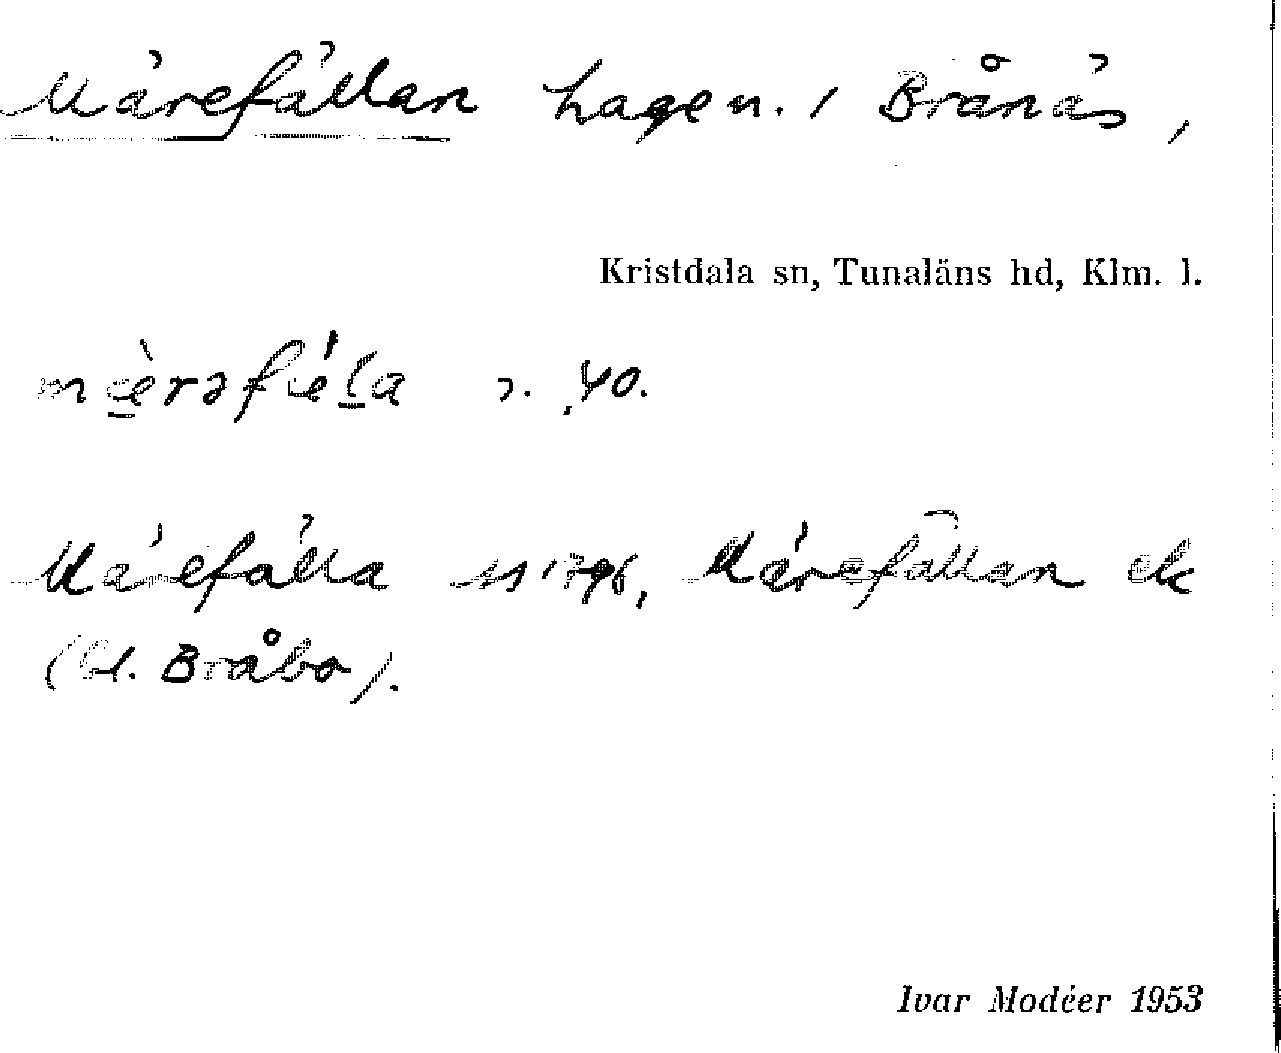 Märefällan hagen. i Brånäs,
Kristdala sn, Tunaläns hd, Klm. l.
mæ̀rəfɩéla ɔ. 40.
Märefälla ss 1796, Märefällan ek
(bl. Bråbo).
Ivar Modéer 1953